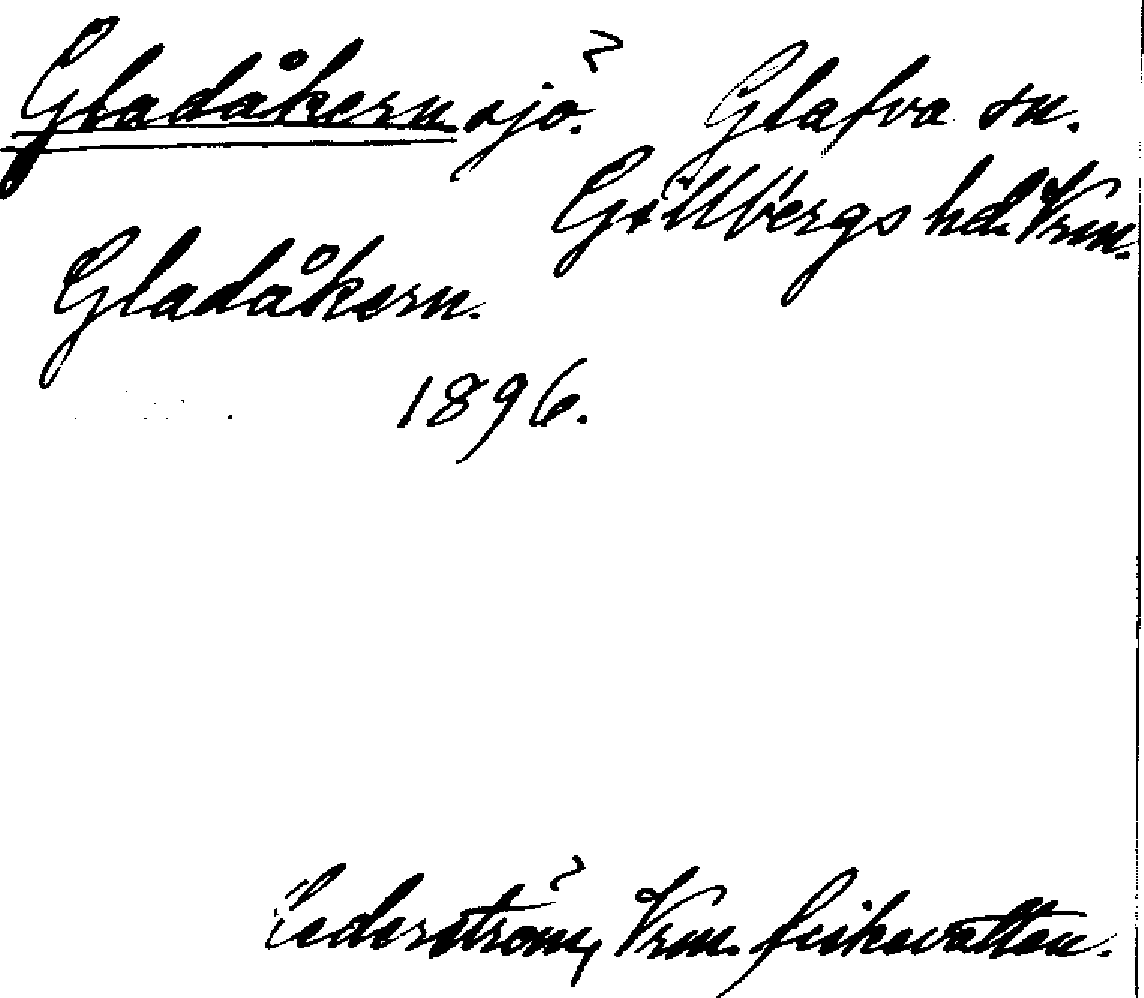 Gladåkern sjö. Glafva sn.
Gillbergs hd. Vrm.
Gladåkern.
1896.
Cederström, Vrm. fiskevatten.